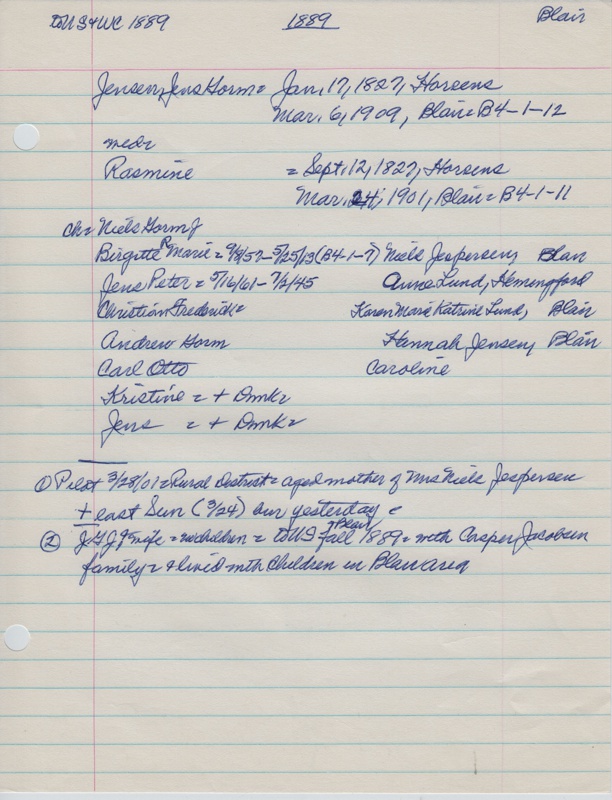 to US & WC 1889 1889 Blair
Jensen, Jens Gorm = Jan. 17, 1827, Horsens
Mar. 6, 1909, Blair = B4-1-12
Rasmine = Sept. 12, 1827, Horsens
Mar. 24, 1901, Blair = B4-1-11
ch = Niels Gorm J
Birgitte R Marie = 9/8/57 - 5/25/13 (B4-1-7) Niels Jespersen, Blair
Jens Peter = 5/16/61 - 7/2/45 Anna Lund, Hemingford
Christian Frederick = Karen Marie Katrine Lund, Blair
Andrew Gorm Hannah Jensen, Blair
Carl Otto Caroline
Kristine = + Dmk =
Jens = + Dmk =
① Pilot 3/28/01 = Rural District = aged mother of Mrs Niels Jespersen
+ east Sun (3/24) bur yesterday =
② JGJ & wife = = to US Blair fall 1889 = with Casper Jacobsen
family = & lived with children in Blair area